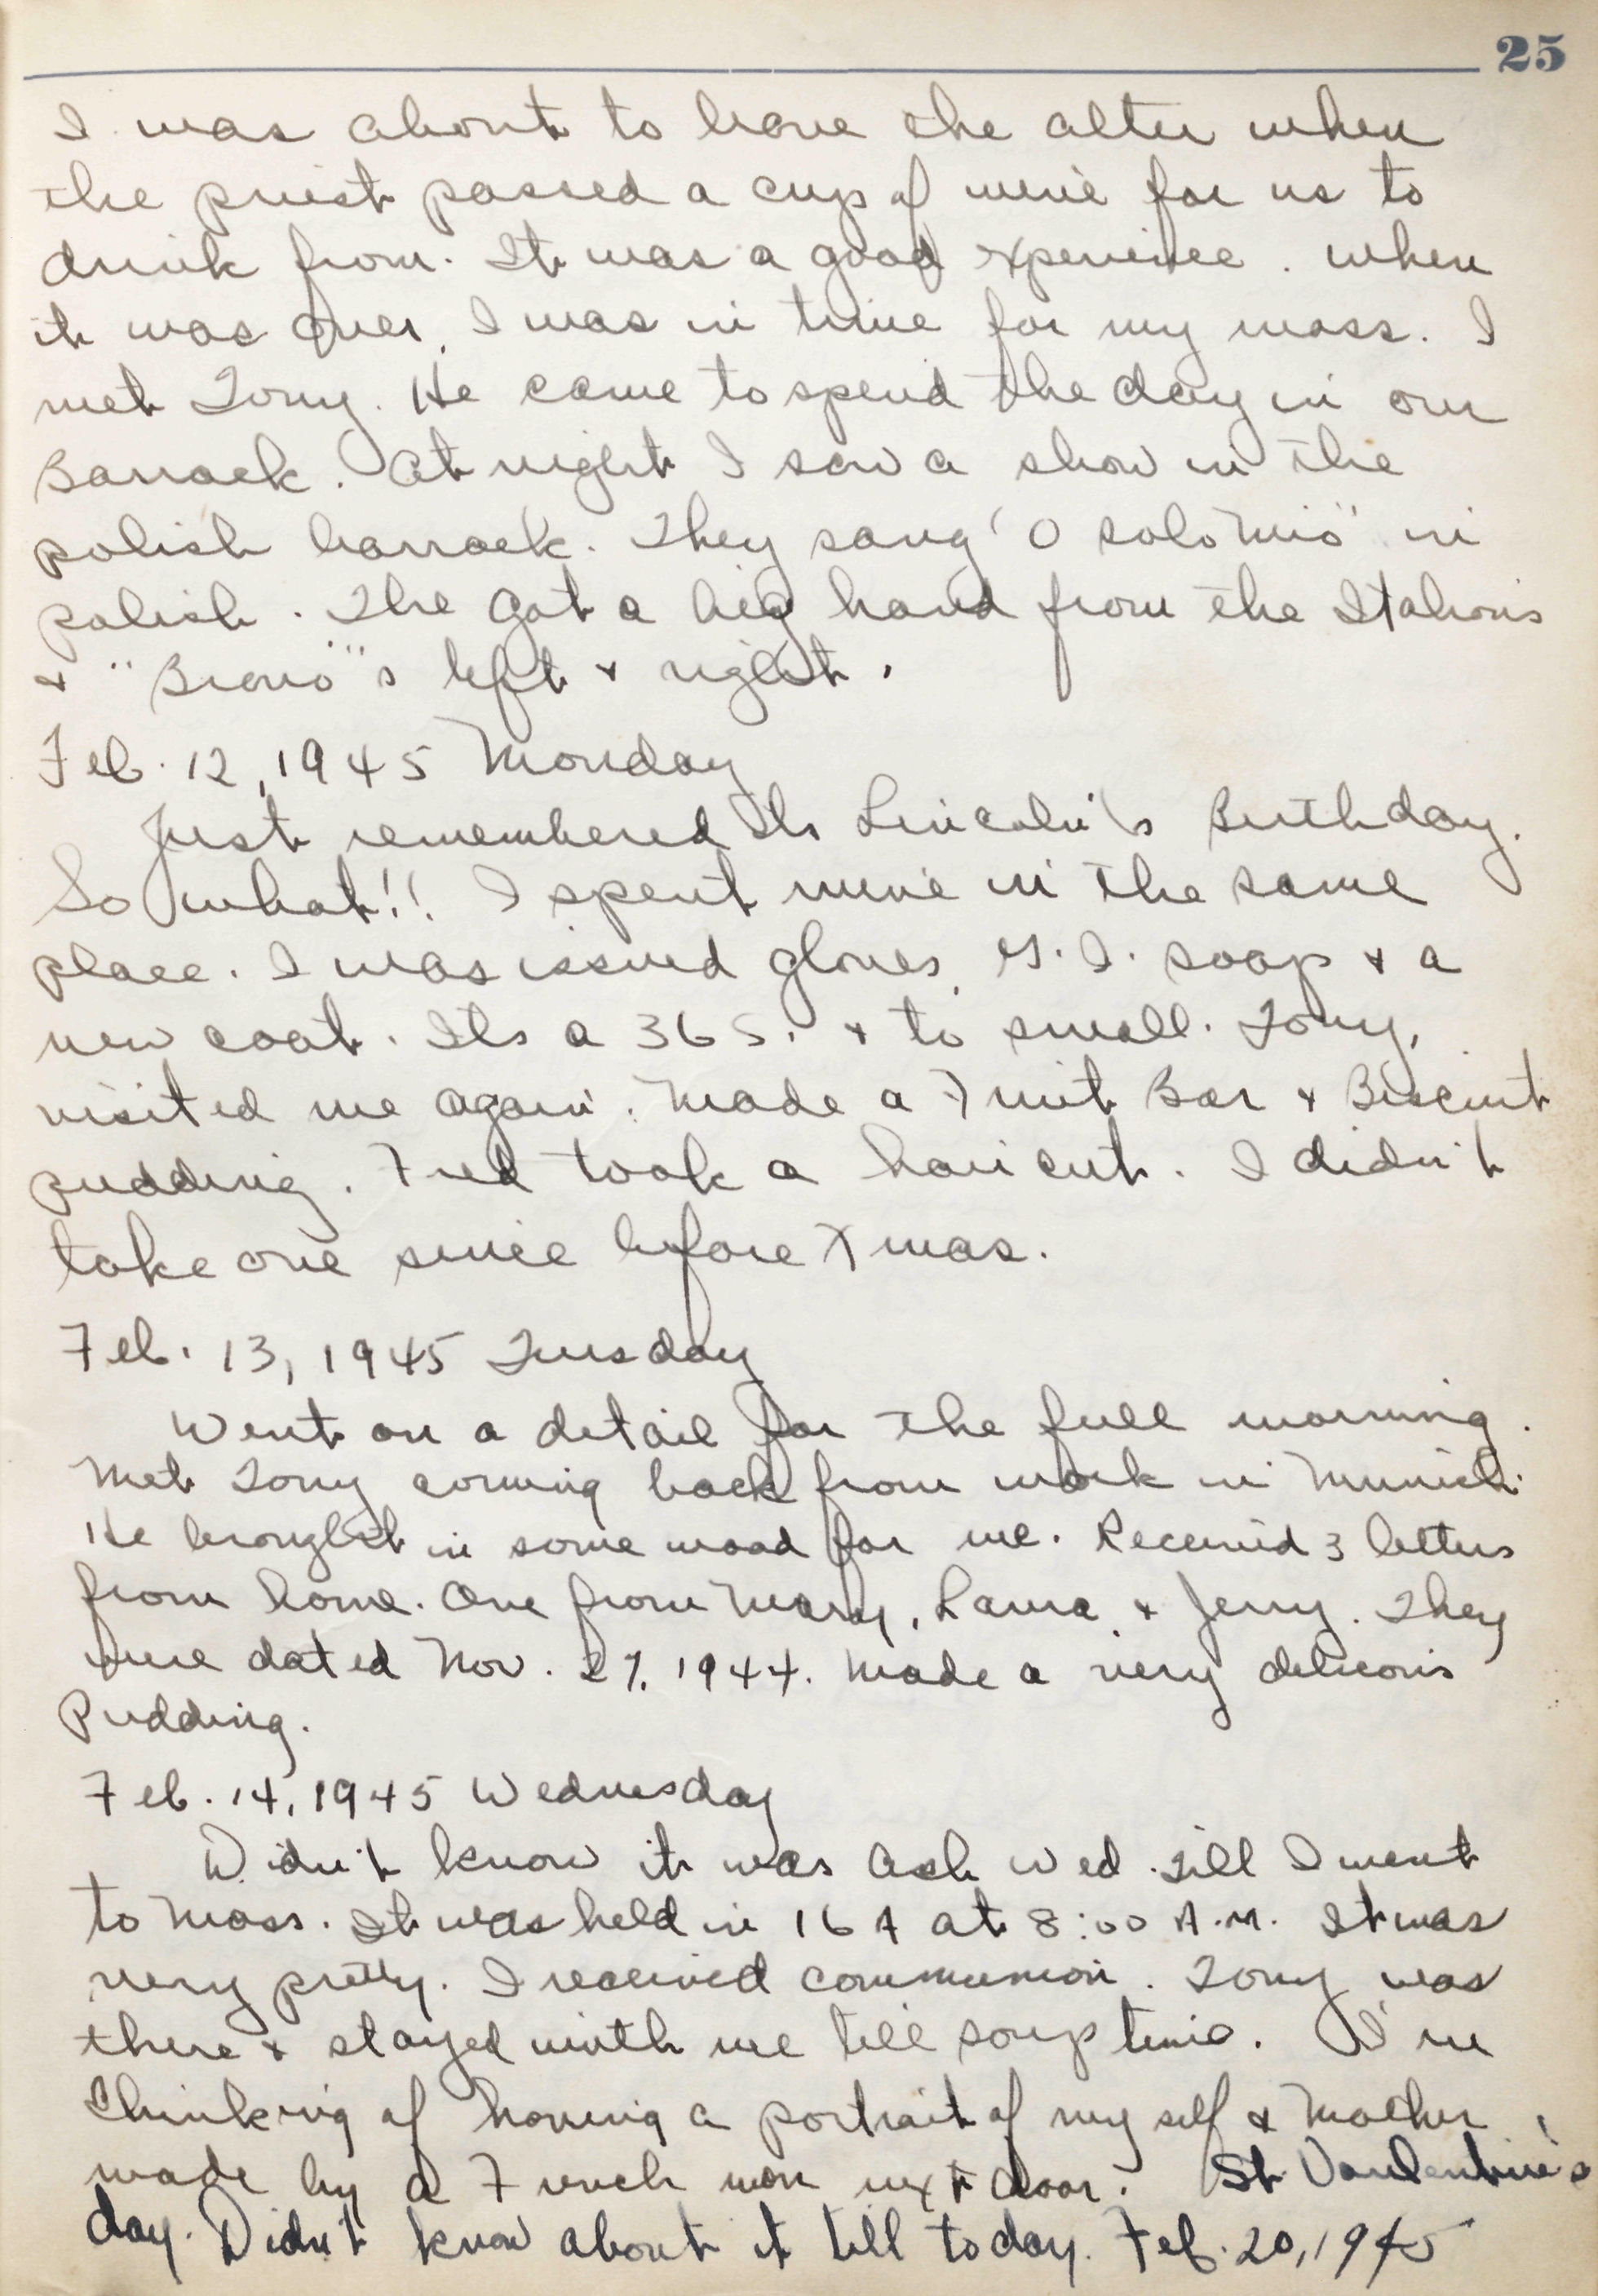 25
I was about to leave the alter when
the priest passed a cup of wine for us to
drink from. It was a good experience. when
it was over, I was in time for my mass. I
met Tony. He came to spend the day in our
Barrack. At night I saw a show in the
polish barrack. They sang "O solo Mio" in
polish. The got a big hand from the Italians
& "Bravo"s left & right.
Feb. 12, 1945 Monday
Just remembered Its Lincoln's Birthday.
So what!! I spent mine in the same
place. I was issued gloves, G.I. soap & a
new coat. Its a 36 S. & to small. Tony,
visited me again. Made a Fruit Bar & Biscuit
pudding. Fred took a haircut. I didn't
take one since before Xmas.
Feb. 13, 1945 Tuesday
Went on a detail for the full morning.
Met Tony coming back from work in Munich.
He brought in some wood for me. Received 3 letters
from home. One from Mary, Laura, & Jerry. They
were dated Nov. 27, 1944. Made a very delicous
Pudding.
Feb. 14, 1945 Wednesday
Didn't know it was Ash Wed. till I went
to Mass. It was held in 16 A at 8:00 A.M. It was
very pretty. I received communion. Tony was
there & stayed with me till soup time. I'm
thinking of having a portrait of my self & Mother
made by a French man next door. St Vanlentine's
day. Didn't know about it till today. Feb. 20, 1945